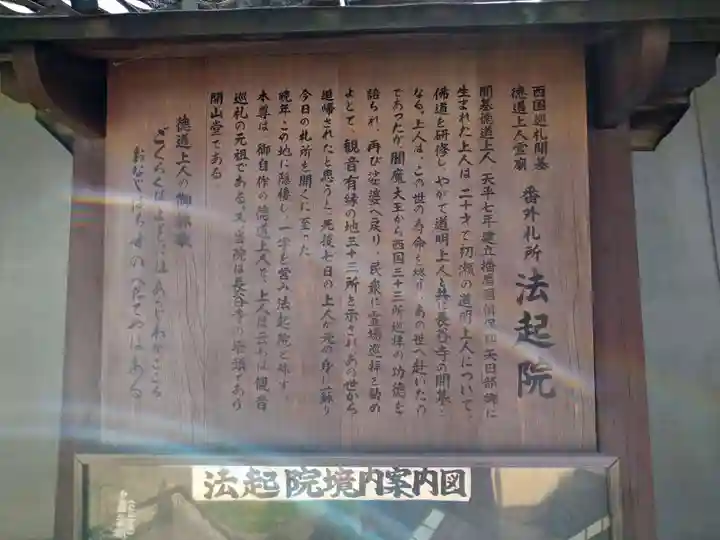 西国巡礼開基
徳道上人霊廟
番外札所 法起院
開基徳道上人 天平七年建立播磨国揖保郡矢田部郷に
生まれた上人は二十才で初瀬の道明上人について、
佛道を研修しやがて道明上人と共に長谷寺の開基と
なる。上人は、この世の寿命を終り、あの世へ赴いたの
であったが、閻魔大王から西国三十三所巡拝の功徳を
語られ、再び娑婆へ戻り、民衆に霊場巡拝を勧め
よとて、観音有縁の地三十三所を示されあの世から
追帰されたと思うと、死後七日の上人が元の身に蘇り
今日の札所を開くに至った
晩年、この地に隠棲し、一宇を営み法起院と称す。
本尊は、御自作の徳道上人で、上人は云わば観音
巡礼の元祖である。又当院は長谷寺の塔頭であり
開山堂である
徳道上人の御詠歌
ごくらくはよそにはあらじわがこころ
おなじはちすのへだてやはある
法起院境内案内図